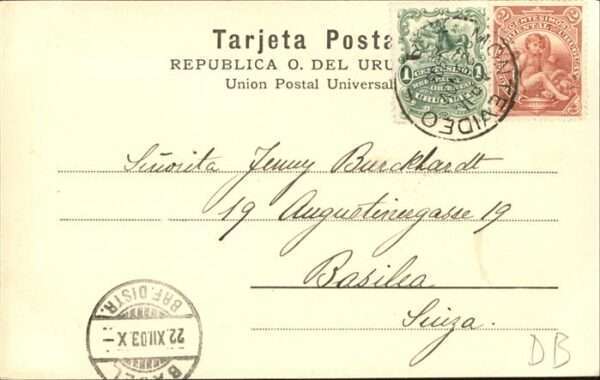 Tarjeta Posta
REPUBLICA O. DEL URU
Union Postal Universal
1 CENTESIMO 1
URUGUAY
2 CENTESIMOS 2
ORIENTAL DEL URUGUAY
MONTEVIDEO
Señorita Jenny Burckhardt
19 Augustinergasse 19
Basilea
Suiza.
BASEL
22.XII.03.X-
BRF. DISTR.
DB